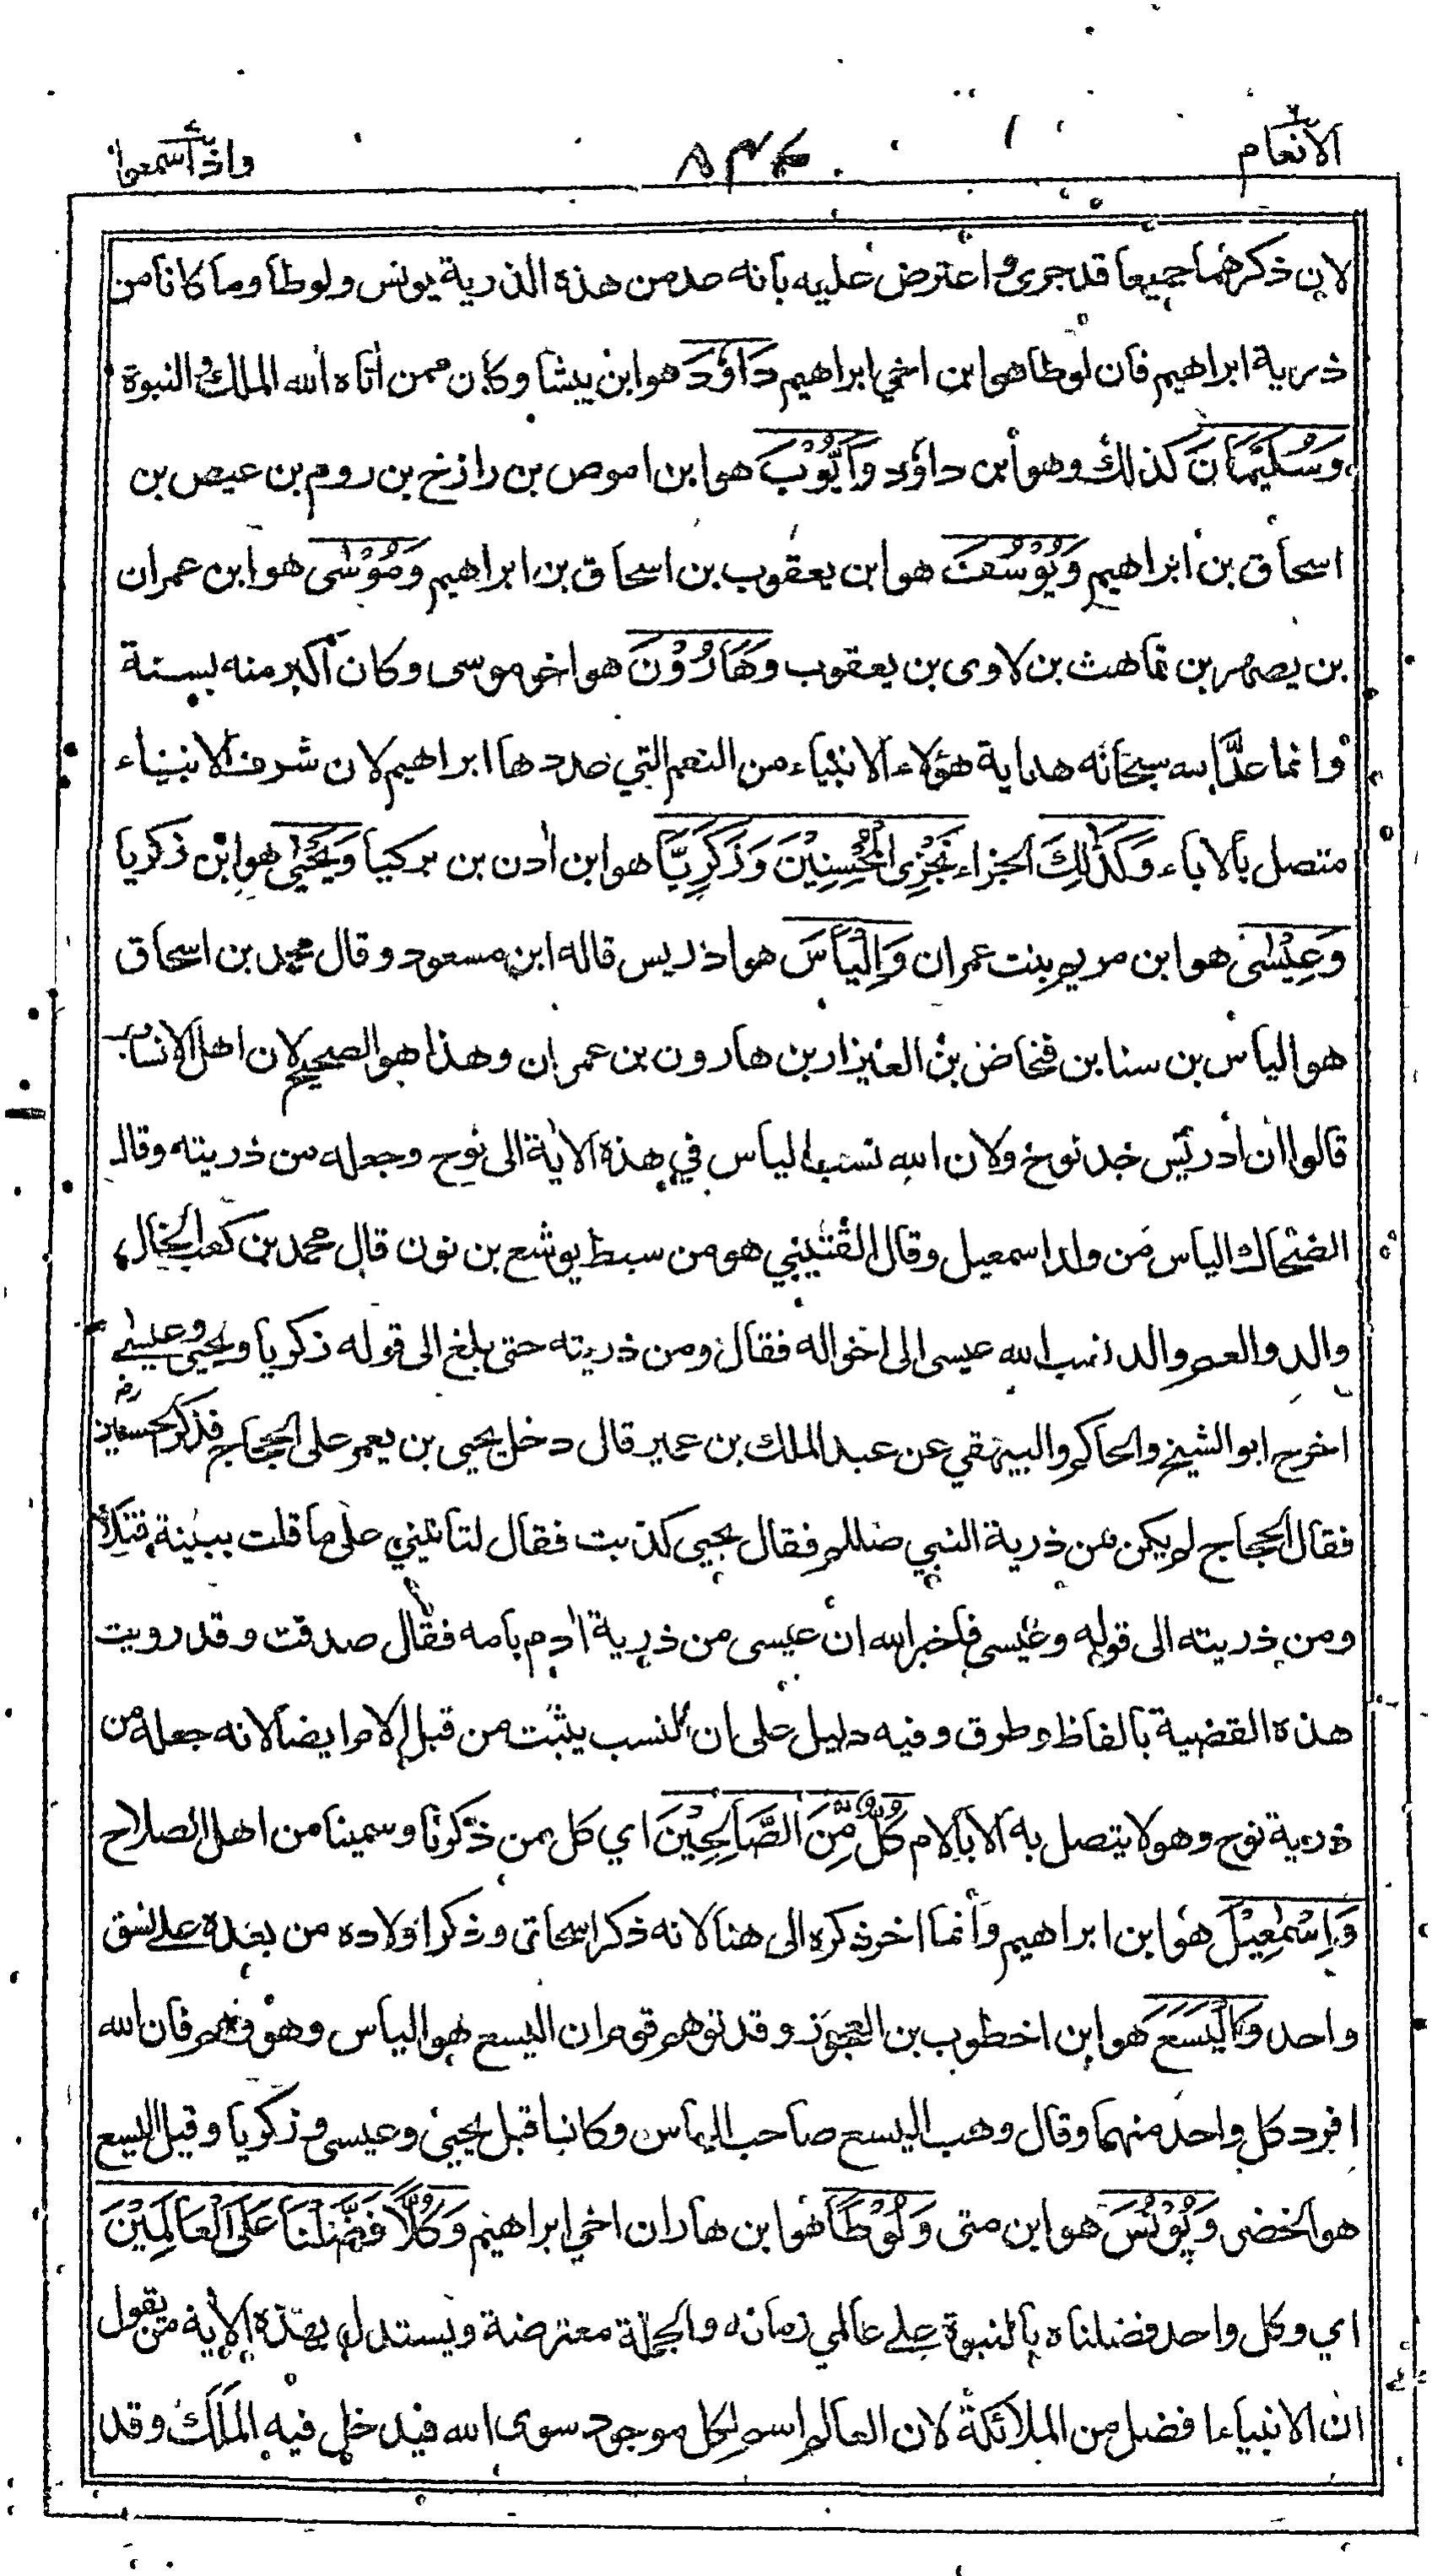 الانعام ٨٣٤ واذا سمعوا
لان ذكرهما جميعا قد جرى واعترض عليه بانه عد من هذه الذرية يونس ولوطا وما كانا من
ذرية ابراهيم فان لوطا هو ابن اخي ابراهيم دَاوٗدَ هو ابن يشا وكان ممن اٰتاه الله الملك والنبوة
وَسُلَيْمَانَ كذلك وهو ابن داوٗد وَاَيُّوْبَ هو ابن اموص بن رازخ بن روم بن عيص بن
اسحاق بن ابراهيم وَيُوْسُفَ هو ابن يعقوب بن اسحاق بن ابراهيم وَمُوْسٰى هو ابن عمران
بن يصهر بن قاهث بن لاوى بن يعقوب وَهَارُوْنَ هو اخو موسى وكان اكبر منه بسنة
وانما عدّ الله سبحانه هداية هؤلاء الانبياء من النعم التي عددها ابراهيم لان شرف الانبياء
متصل بالاباء وَكَذٰلِكَ الجزاء نَجْزِى الْمُحْسِنِيْنَ وَزَكَرِيَّا هو ابن اٰدن بن بركيا وَيَحْيٰى هو ابن زكريا
وَعِيْسٰى هو ابن مريم بنت عمران وَاِلْيَاسَ هو ادريس قاله ابن مسعود وقال محمد بن اسحاق
هو الياس بن سنا بن فنحاض بن العيزار بن هارون بن عمران وهذا هو الصحيح لان اهل الانساب
قالوا ان ادريس جد نوح ولان الله نسب الياس في هذه الاٰية الى نوح وجعله من ذريته وقال
الضحاك الياس من ولد اسمعيل وقال القتيبي هو من سبط يوشع بن نون قال محمد بن كعب الخال
والد والعم والد نسب الله عيسى الى اخواله فقال ومن ذريته حتى بلغ الى قوله زكريا ويحيى وعيسى
اخرج ابو الشيخ والحاكم والبيهقي عن عبد الملك بن عمير قال دخل يحيى بن يعمر على الحجاج فذكر الحسين رض
فقال الحجاج لم يكن من ذرية النبي صللم فقال يحيى كذبت فقال لتاتيني على ما قلت ببينة فتلا
ومن ذريته الى قوله وعيسى فاخبر الله ان عيسى من ذرية اٰدم بامه فقال صدقت وقد رويت
هذه القضية بالفاظ وطرق وفيه دليل على ان النسب يثبت من قبل الام ايضا لانه جعله من
ذرية نوح وهو لا يتصل به الا بالام كُلٌّ مِّنَ الصَّالِحِيْنَ اي كل من ذكرنا وسمينا من اهل الصلاح
وَاِسْمٰعِيْلَ هو ابن ابراهيم وانما اخر ذكره الى هنا لانه ذكر اسحاق وذكر اولاده من بعده على نسق
واحد وَالْيَسَعَ هو ابن اخطوب بن العجوز وقد توهم قوم ان اليسع هو الياس وهو وهم فان الله
افرد كل واحد منهما وقال وهب اليسع صاحب الياس وكانا قبل يحيى وعيسى وزكريا وقيل اليسع
هو الخضر وَيُوْنُسَ هو ابن متى وَلُوْطًا هو ابن هاران اخي ابراهيم وَكُلًّا فَضَّلْنَا عَلَى الْعَالَمِيْنَ
اي وكل واحد فضلناه بالنبوة على عالمي زمانه والجملة معترضة ويستدل بهذه الاٰية من يقول
ان الانبياء افضل من الملائكة لان العالم اسم لكل موجود سوى الله فيدخل فيه الملك وقد